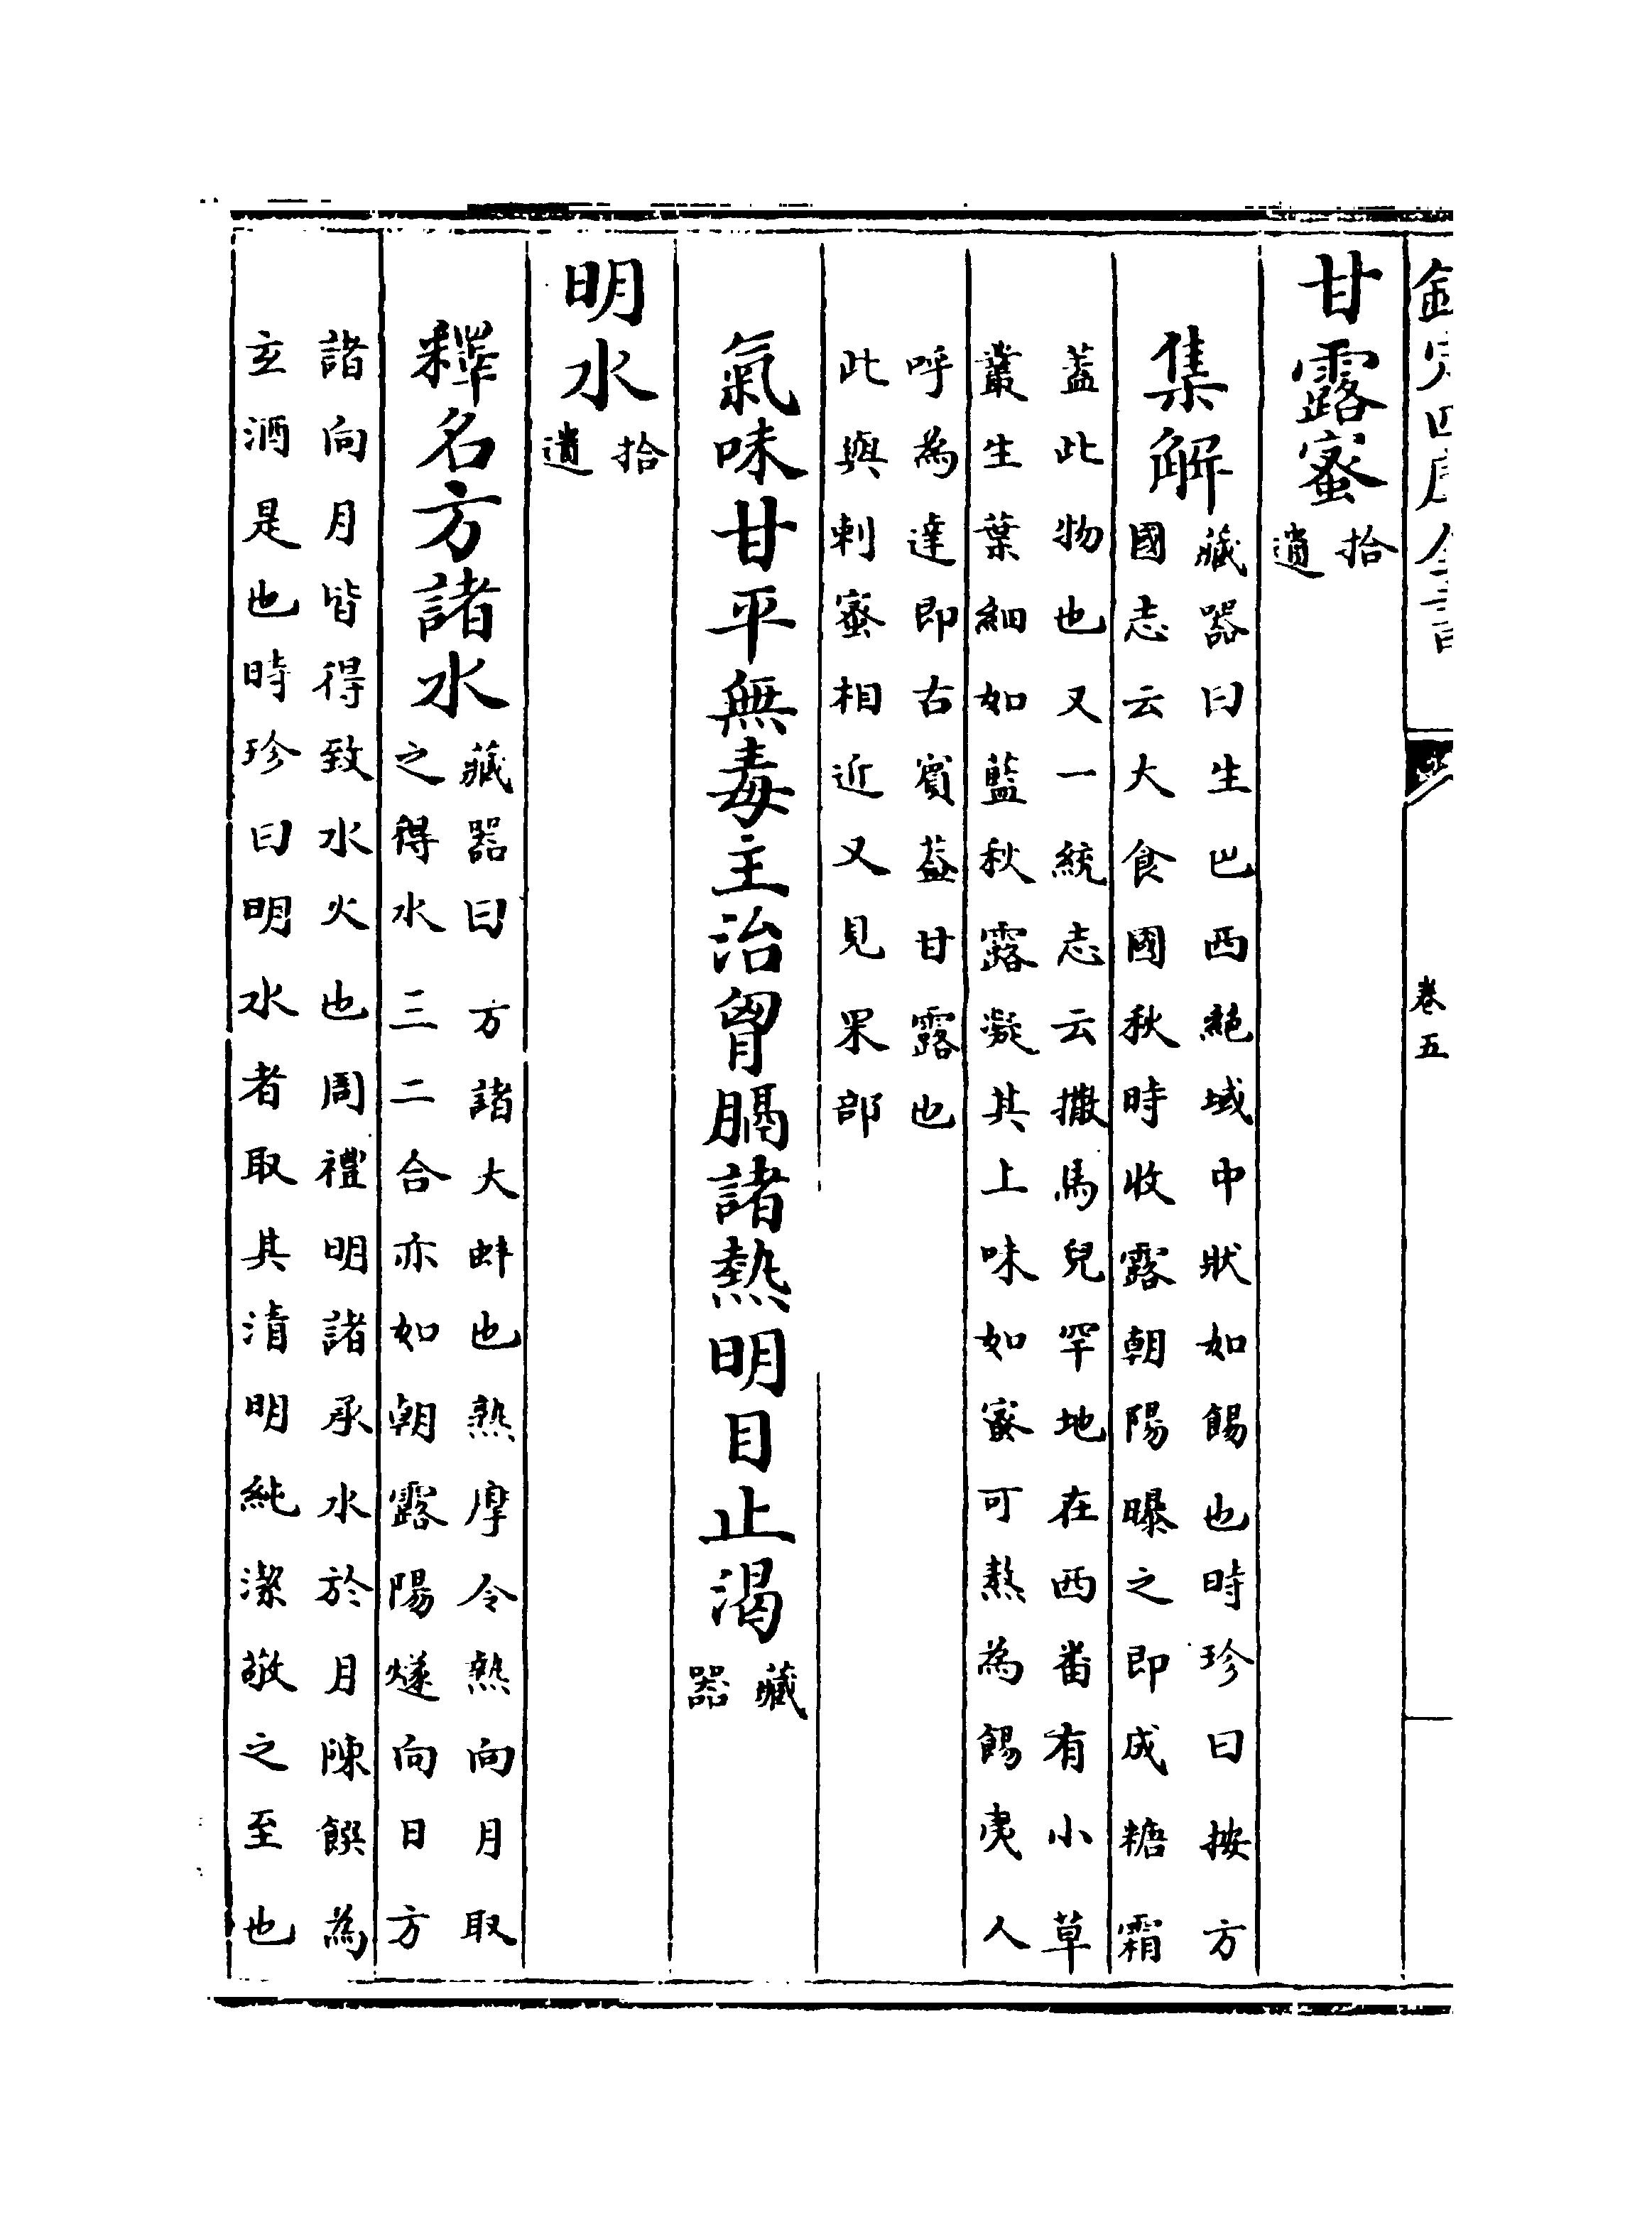 欽定四庫全書
卷五
甘露蜜拾
遺
集解藏器曰生巴西絕域中狀如餳也時珍曰按方
國志云大食國秋時收露朝陽曝之即成糖霜
蓋此物也又一統志云撒馬兒罕地在西番有小草
叢生葉細如藍秋露凝其上味如蜜可熬為餳夷人
呼為達即右賓蓋甘露也
此與刺蜜相近又見果部
氣味甘平無毒主治胷膈諸熱明目止渴藏
器
明水拾
遺
釋名方諸水藏器曰方諸大蚌也熟摩令熱向月取
之得水三二合亦如朝露陽燧向日方
諸向月皆得致水火也周禮明諸承水於月陳饌為
玄酒是也時珍曰明水者取其清明純潔敬之至也